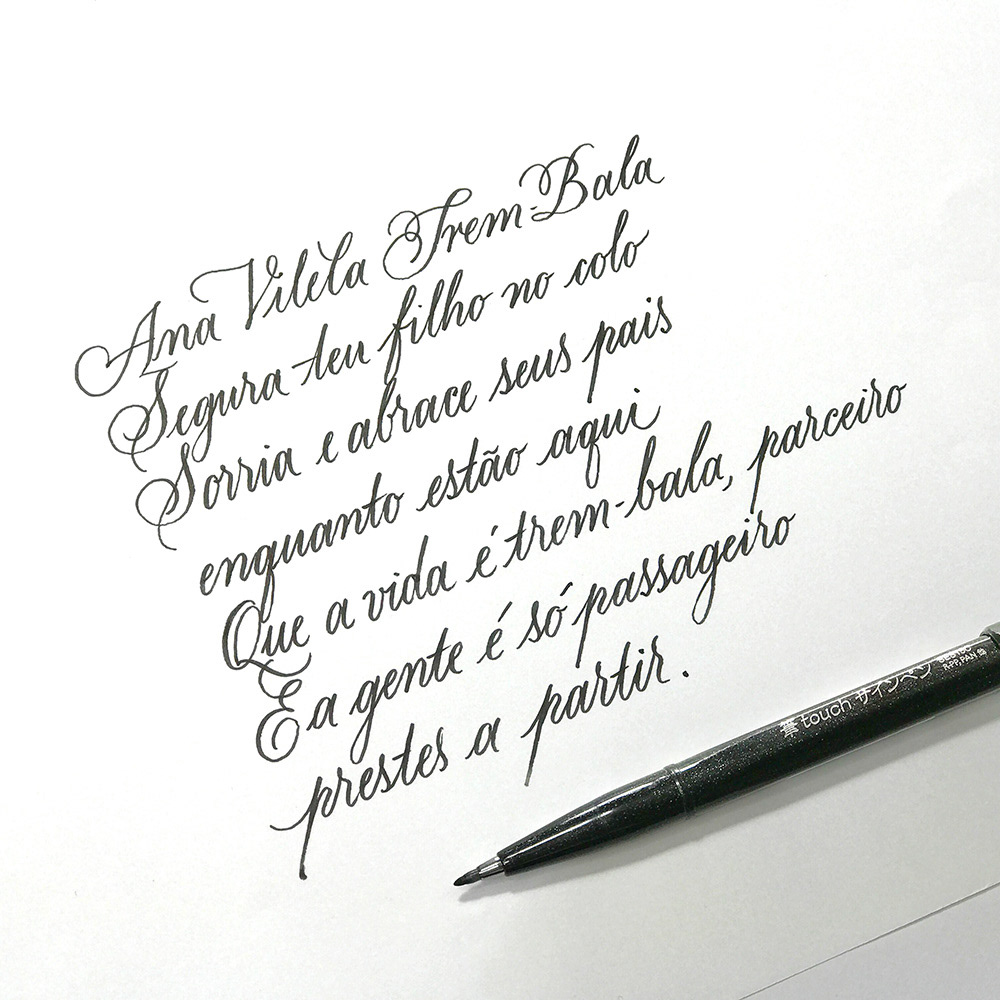 Ana Vilela Trem-Bala
Segura teu filho no colo
Sorria e abrace seus pais
enquanto estão aqui
Que a vida é trem-bala, parceiro
E a gente é só passageiro
prestes a partir.
筆touch サインペン